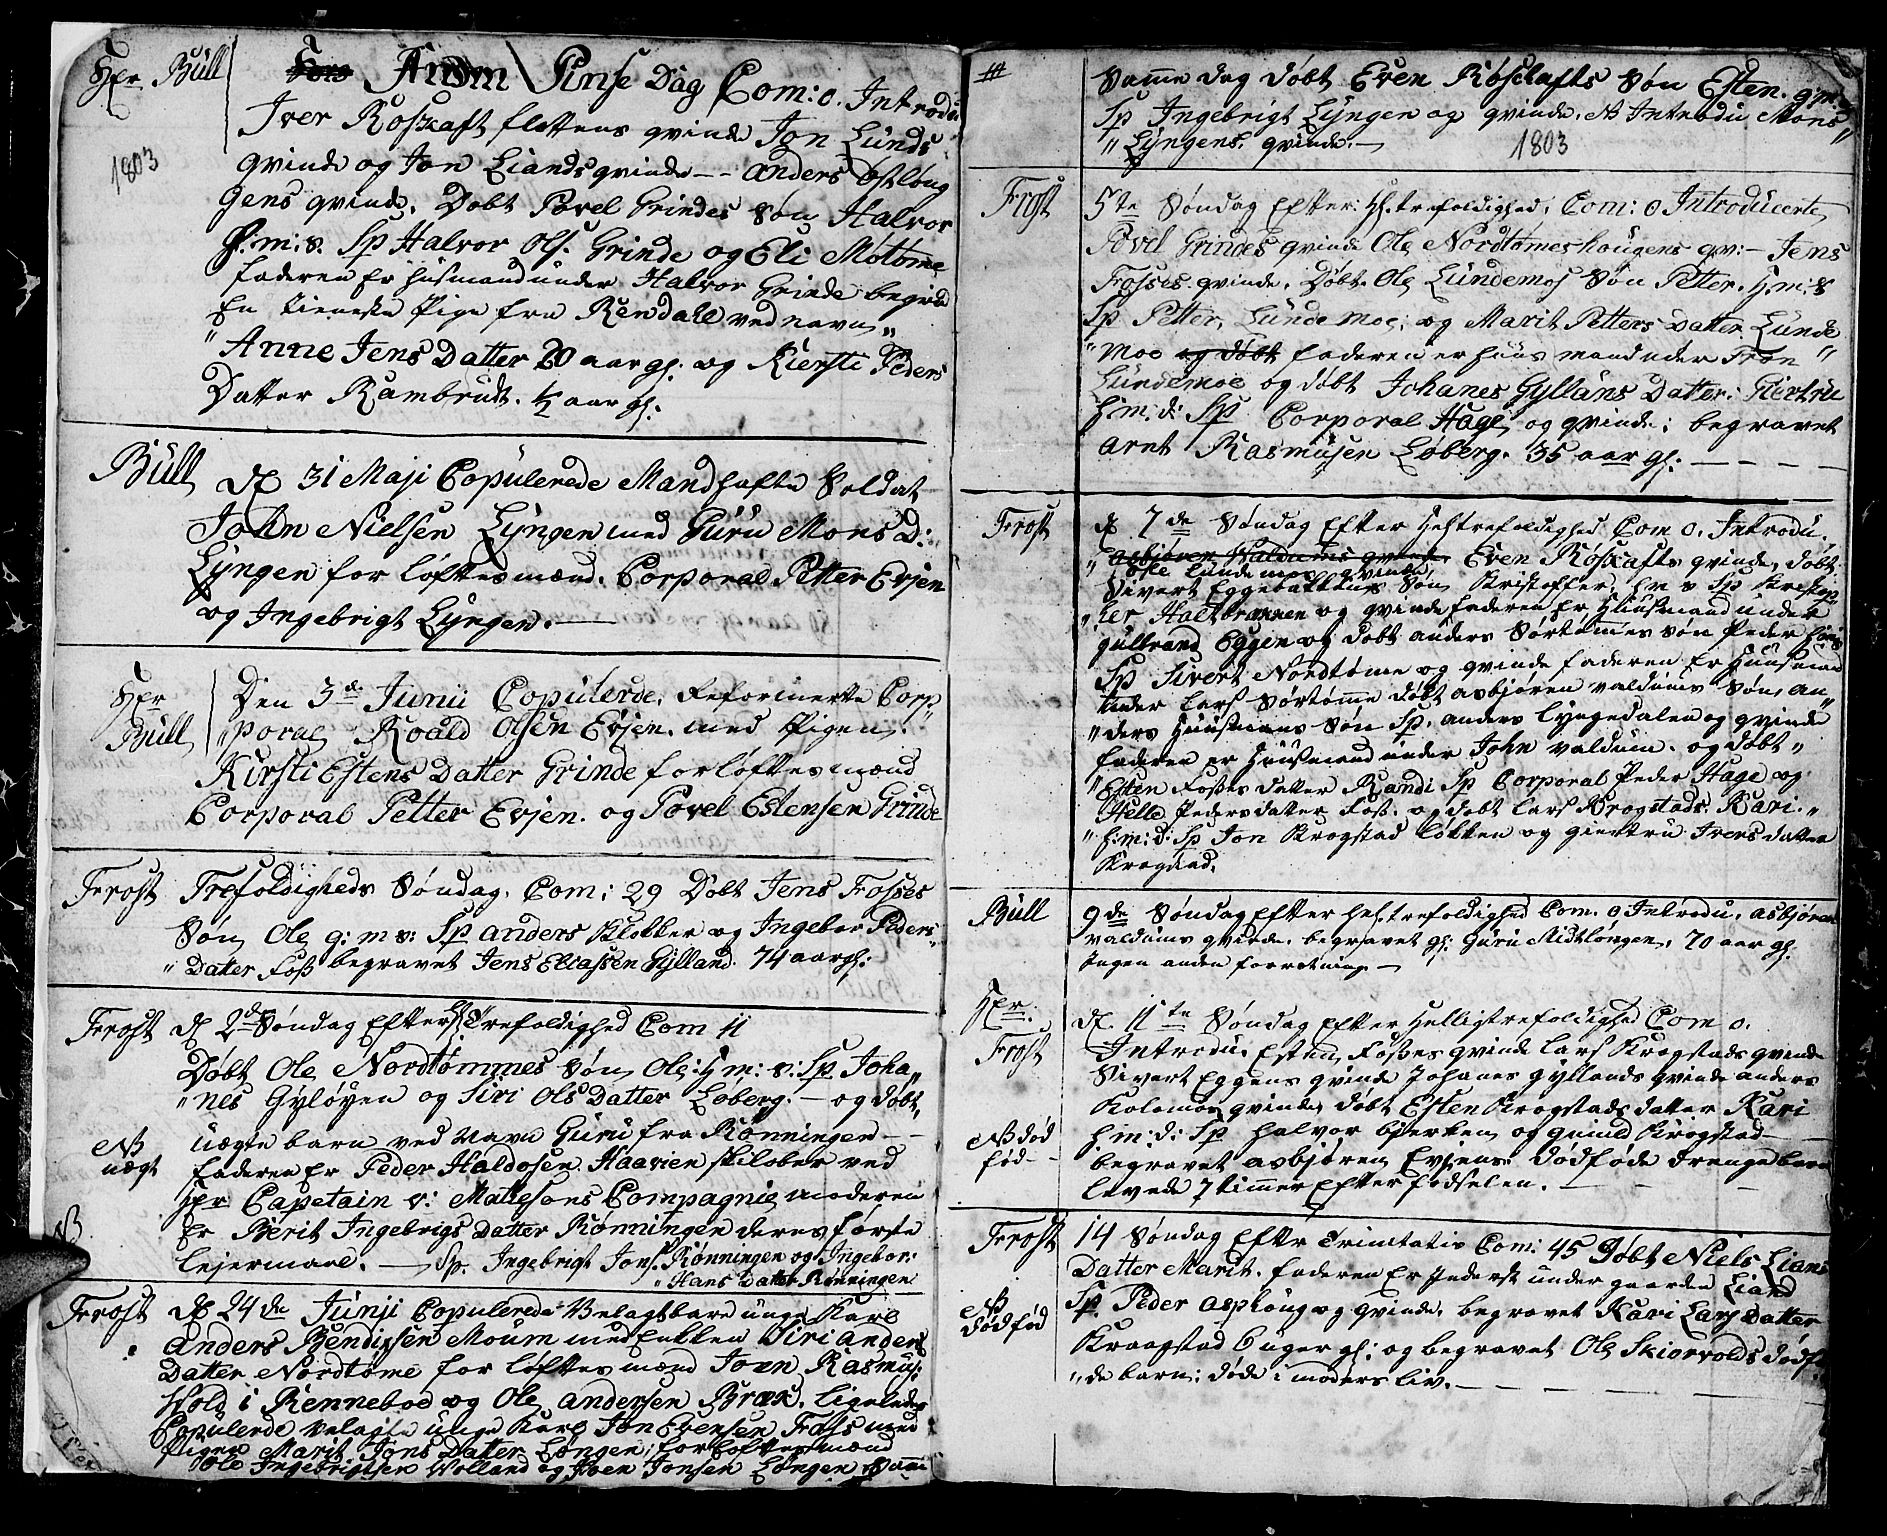 Hr. Büll
1803
Anden Pinse Dag Com: 0. Introdu
Iver Roskaft flottens qvinde Jon Lunds
qvinde og Jon Liands qvinde -- Anders Østlöng
gens qvinde. Döbt Povel Grindes Sön Halvor
H: m: s. Sp Halvor Ols. Grinde og Eli Motömme
faderen er Husmand under Halvor Grinde begrav
En tieneste Pige fra Rendahl ved navn
"Anne Jens Datter 20 aar gl: og Kiersti Peders
Datter Rambrudt. ½ aar gl:
Büll
d 31 Maji Copulerede Mandhafte Soldat
John Nielsen Lyngen med Guru Mons D:
Lyngen for løftesmænd. Corporal Petter Evjen
og Ingebrigt Lyngen.
Hr
Büll
Den 3de Junii Copulerde, Reformerte Corp
"poral Roald Olsen Evjen. med Pigen
Kirsti Estens Datter Grinde forløftesmænd
Corporal Petter Evjen. og Povel Estensen Grinde
Frost
Trefoldigheds Söndag. Com: 29 Döbt Jens Fosses
Sön Ole g: m s: Sp anders Klokker og Ingebor Peders
"Datter Foss begravet Jens Eliassen Gylland. 74 aar gl:
Frost
d 2de Söndag Efter H Trefoldighed Com 11
Döbt Ole Nordtömmes Sön Ole: H m: s: Sp Joha
"nes Gyløyen og Siri Ols Datter Løberg. - og döbt
NB
uægt
uægte barn ved Navn Guru fra Rönningen
faderen Er Peder Haldosen Haarien skilober ved
Hr Capetain v: Mattesons Compagnie moderen
Er Berit Ingebrigs Datter Rönningen deres förste
NB
Lejermaal. - Sp. Ingebrigt Jons. Rönningen og Ingebor:
"Hans Datter Rönningen
Frost
d 24de Junji Copulerede Velagtbare unge Karl
Anders Bendixsen Moum med Enkken Siri Anders
Datter Nordtöme for løftesmænd Joen Rasmus:
Wold i Rennebod og Ole Andersen Bræk. Ligeledes
Copulerde Velagte unge Karl Jon Evensen Foss med
Pigen Marit Jons Datter Löngen; for løftesmænd
Ole Ingebrigtsen Volland og Joen Jonsen Löngen Sam
Samme dag döbt Even Röskafts Sön Esten. g: m: s
Sp Ingebrigt Lyngen og qvinde. NB Introdu Mons
"Lyngens. qvinde. -
1803
Frost
5te Söndag Efter: H: trefoldighed, Com: 0 Introducerte
Povel Grindes qvinde Ole Nordtömeshougens qv: - Jens
Fosses. qvinde. Döbt. Ole Lundemos Sön Petter. H: m: s
Sp Petter, Lundemoe; og Marit Petters Datter Lunde
"moe og döbt faderen er huus mand uder Tron
Lundemoe og döbt Johanes Gyllans Datter: Giertru
H: m: d: Sp Corporal Hage og qvinde; begravet
Arnt Rasmusen Løberg. 35 aar gl:
Frost
d 7de Söndag Efter Hel: trefoldighed Com 0. Introdu.
"asbjören Valdums qvinde Even Roskafts qvinde, döbt
Ole Lundemoes qvinde
Sivert Eggebakkens Sön Kristoffer, H m s Sp Kristop
"her Haltbrækken og qvinde faderen Er Huusmand under
gulbrand Eggen og döbt anders Sörtömes sön Peder H: m: s
Sp Sivert Nordtöme og qvinde faderen Er Huusman
under Lars Sörtömme döbt asbjören valdums Sön, An
"ders Huusmans Sön Sp. anders Lyngedalen og qvinde
faderen er Huusmand under John valdum. og döbt
"Esten Fosses datter Randi Sp Corporal Peder Hage og
Helle Pedersdatter Foss. og döbt Lars Krogstads. Kari.
"H: m: d: Sp Jon Krogstad Løkken og giertru Ivers datter
Krogstad.
Büll
9de Söndag Efter Hel. trefoldighed Com. 0. Introdu. asbjören
valdums qvinde. begravet gl: Guru Midtlöngen. 70 aar gl.
Ingen anden forretning -
Hr.
Frost
d. 11te Söndag Efter Helligtrefoldighed Com 0.
Introdu. Esten Fosses qvinde Lars Krogstads qvinde
Sivert Eggens qvinde Johanes gyllands qvinde anders
Kolemoes qvinde, döbt Esten Krogstads datter Kari
NB död
fød -
H: m: d: Sp Halvor bjerken og gunild Krogstad
begravet asbjören Evjens. dödføde drengebarn
levede 7 timer Efter födselen.
Frost
14 Söndag Efter Trinitatis Com: 45 Döbt Niels Lians
Datter Marit. faderen Er Inderst under gaarden Liand
NB
dödföd
Sp. Peder Asphöug og qvinde. begravet Kari Lars Datter
Kraagstad 6 uger gl: og begravet Ole Skiervolds dödfø
"de barn; döde i moders liv.